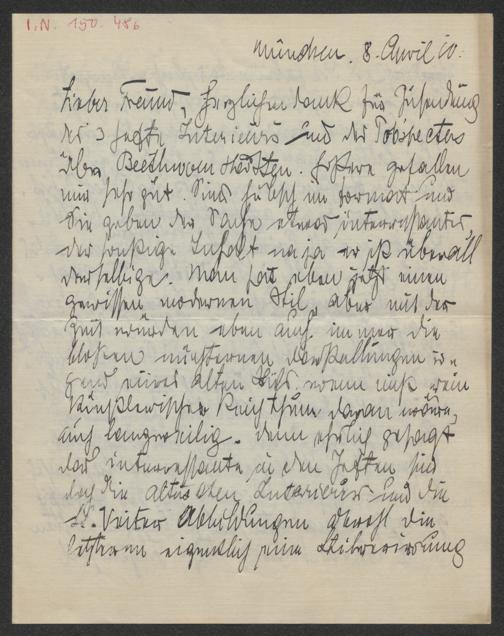 I.N. 190.486
München. 8. April 10.
Lieber Freund, Herzlichen Dank für Zusendung
der 3 Hefte Interieurs und des Prospectes
über Beethoven. Erstere gefallen
mir sehr gut. Sind hübsch im Format und
Sie geben der Sache etwas interessantes,
der sonstige Inhalt na ja er ist überall
derselbige. Man hat eben jetzt einen
gewissen modernen Stil, aber mit der
Zeit würden eben auch immer die
bloßen nüchternen Darstellungen ir-
gend eines alten Stils wenn nicht rein
künstlerischer Reichthum daran wäre,
auch langweilig. Denn ehrlich gesagt
das interessante in den Heften sind
doch die altdeutschen Interieurs und die
St. Veiter Abbildungen obwohl die
letzteren eigentlich eine Stilverirrung